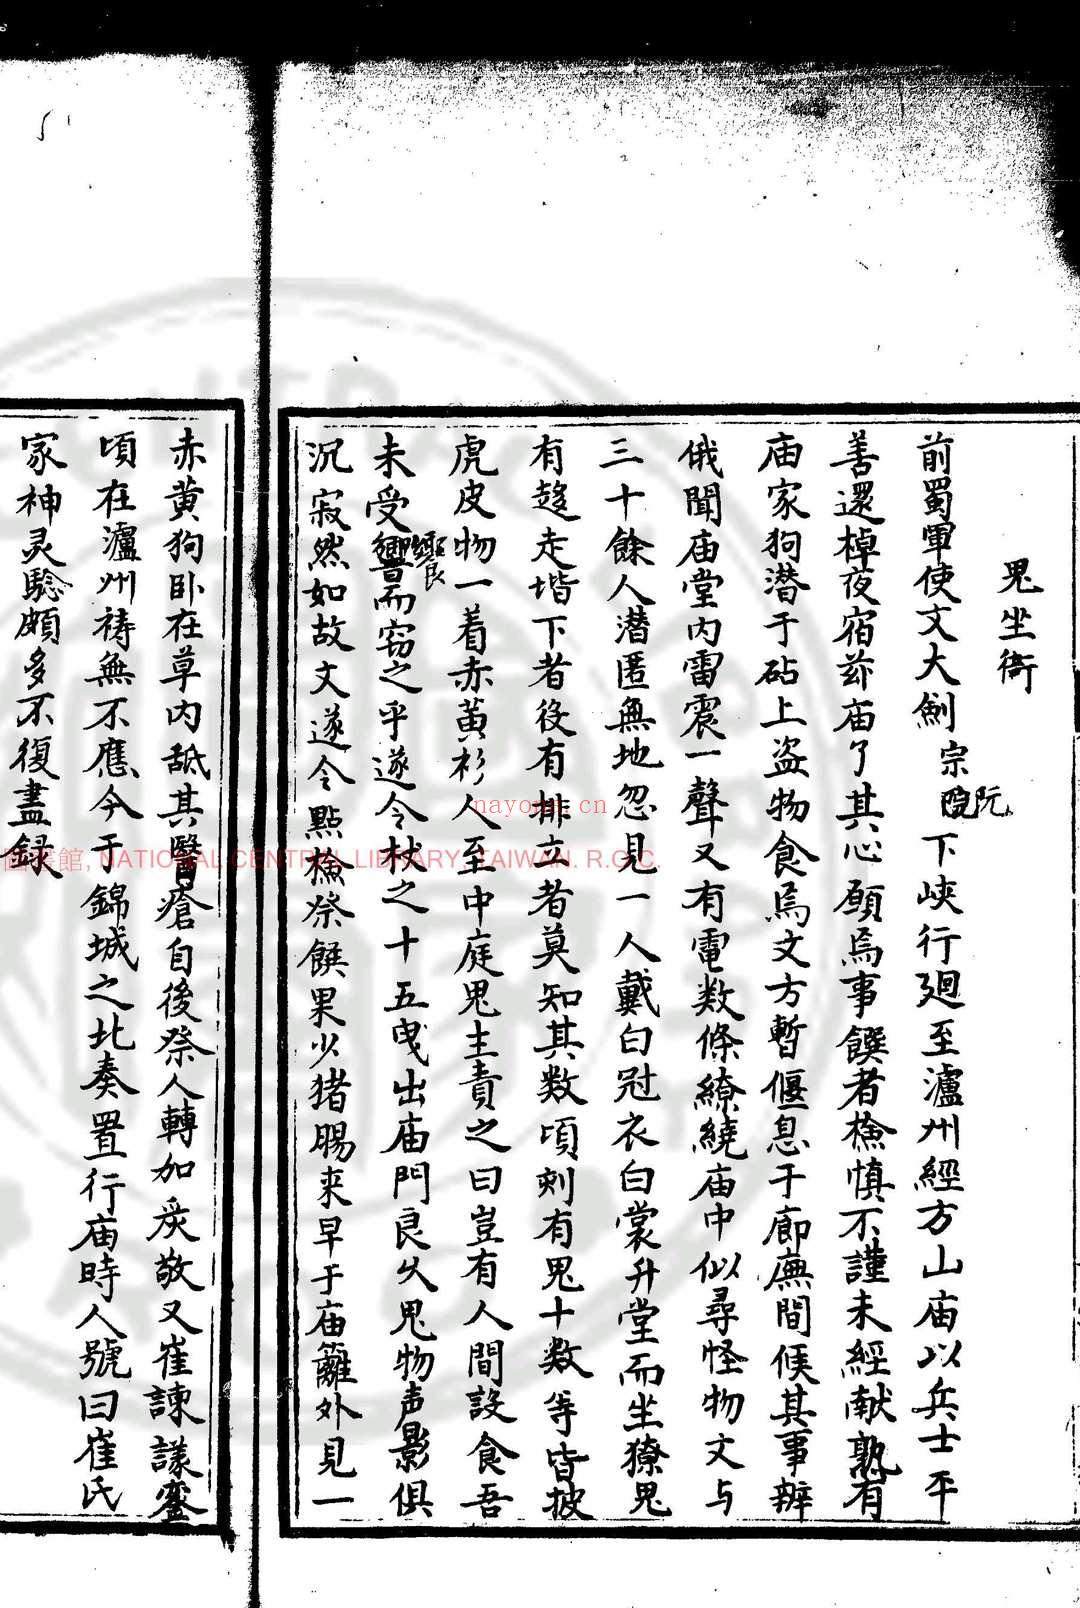 鬼坐衙
前蜀軍使文大劍宗阮下峽行廻至瀘州經方山庙以兵士平
善還棹夜宿茲庙了其心願焉事饌者檢慎不謹未經献熟有
庙家狗潜于砧上盗物食焉文方暫偃息于廊廡間候其事辦
俄聞庙堂内雷震一聲又有電数條繚繞庙中似尋怪物文与
三十餘人潜匿無地忽見一人戴白冠衣白裳升堂而坐獠鬼
有趍走堦下者後有排立者莫知其数頃刻有鬼十数等皆披
虎皮物一着赤黄衫人至中庭鬼主責之曰豈有人間設食吾
未受響饗而窃之乎遂令杖之十五曳出庙門良久鬼物声影俱
沉寂然如故文遂令點檢祭饌果少猪腸来早于庙籬外見一
赤黄狗卧在草内舐其臀瘡自後祭人轉加炭敬又崔諫議蜜
頃在瀘州祷無不應今于錦城之北奏置行庙時人號曰崔氏
家神灵驗頗多不復盡録
nayona.cn
圖書館, NATIONAL CENTRAL LIBRARY, TAIWAN. R.O.C.